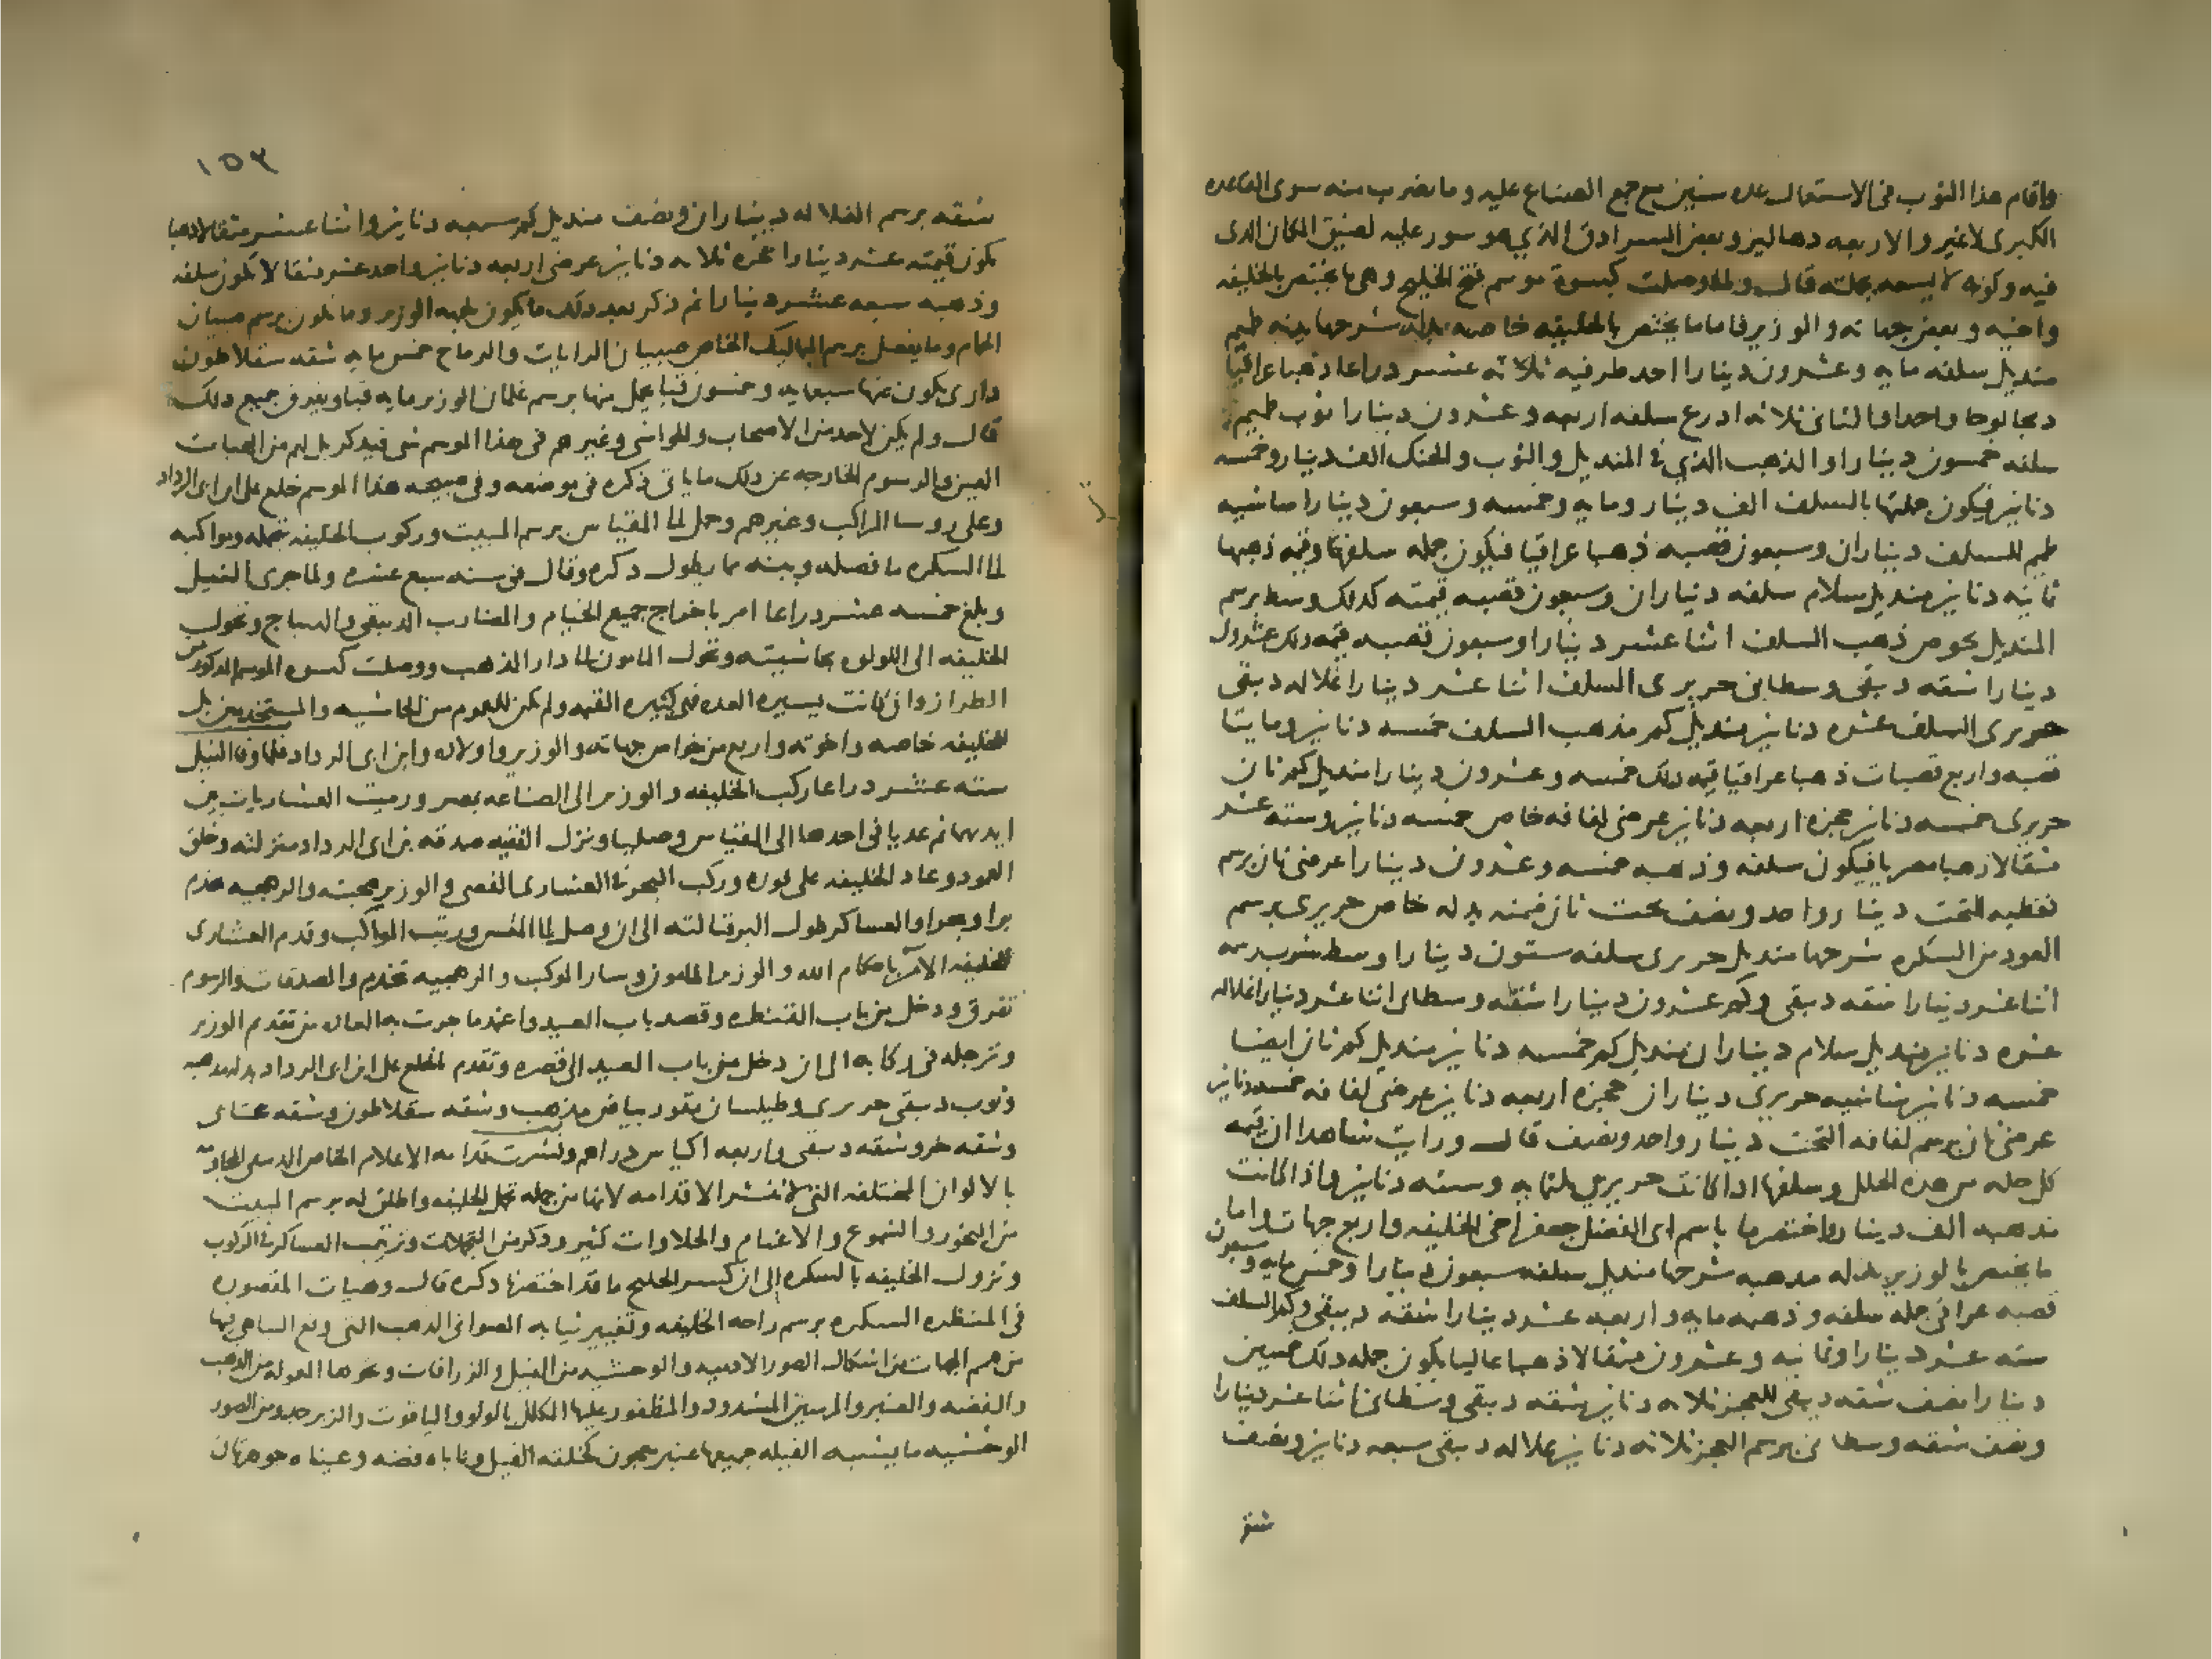 واقام هذا الثوب فى الاستعمال عده سنين مع جمع الصناع عليه وما يضرب منه سوى القاعده
الكبرى لاغير والاربعه دهاليز وبعض السرادق الذي هو سور عليه لضيق المكان الذى
فيه وكونه لا يسعه بجملته قال ولما وصلت كسوة موسم فتح الخليج وهى ما يختص بالخليفه
واخيه وبعض جهاته والوزير فاما ما يختص بالخليفه خاصه بدله شرحها بدنه طميم
منديل سلفه مايه وعشرون دينارا احد طرفيه ثلاثه عشر دراعا ذهبا عراقيا
دمجا لوحا واحدا والثانى ثلاثه ادرع سلفه اربعه وعشرون دينارا ثوب طميم
سلفه خمسون دينارا والذهب الذي في المنديل والثوب والحنك الف دينار وخمسه
دنانير فيكون جملتها بالسلف الف دينار ومايه وخمسه وسبعون دينارا شاشيه
طميم للسلف ديناران وسبعون قصبه ذهبا عراقيا فيكون جمله سلفها وقيمه ذهبها
ثمانيه دنانير منديل سلام سلفه ديناران وسبعون قصبه قيمته كذلك وسط برسم
المنديل بحوص ذهب السلف اثنا عشر دينارا وسبعون قصبه قيمه ذلك عشرون
دينارا شقه دبيقى وسطانى حريرى السلف اثنا عشر دينارا غلاله دبيقى
حريرى السلف عشره دنانير منديل كم مذهب السلف خمسه دنانير ومايتا
قصبه واربع قصبات ذهبا عراقيا قيمه ذلك خمسه وعشرون دينارا منديل كم ثان
حريرى خمسه دنانير حجزه اربعه دنانير عرضى لفافه خاص خمسه دنانير وسته عشر
مثقالا ذهبا مصريا فيكون سلفه وذهبه خمسه وعشرون دينارا عرضى ثان برسم
تغطيه التخت دينار واحد ونصف تخت ثان ضمنه بدله خاص حريرى برسم
العود من السكره شرحها منديل حريرى سلفه ستون دينارا وسط شرب رسمه
اثنا عشر دينارا شقه دبيقى وكم عشرون دينارا شقه وسطانى اثنا عشر دينارا غلاله
عشره دنانير منديل سلام ديناران منديل كم خمسه دنانير منديل كم ثان ايضا
خمسه دنانير شاشيه حريرى ديناران حجزه اربعه دنانير عرضى لفافه خمسه دنانير
عرضى ثان برسم لفافه التخت دينار واحد ونصف قال ورايت شاهدا ان قيمه
كل حله من هذه الحلل وسلفها اذا كانت حريرى ثلثمايه وسته دنانير واذا كانت
مذهبه الف دينار واختصر ما باسم ابى الفضل جعفر اخى الخليفه واربع جهات واما
ما يختص بالوزير بدله مذهبه شرحها منديل سلفه سبعون دينارا وخمس مايه وسبعون
قصبه عراقى جمله سلفه وذهبه مايه واربعه عشر دينارا شقه دبيقى وكم السلف
سته عشر دينارا وثمانيه وعشرون مثقالا ذهبا عاليا يكون جمله ذلك خمسين
دينارا نصف شقه دبيقى للحجز ثلاثه دنانير شقه دبيقى وسطانى اثنا عشر دينارا
ونصف شقه وسطانى برسم الحجز ثلاثه دنانير غلاله دبيقى سبعه دنانير ونصف
شقه
١٥٣
شقه برسم الغلاله ديناران ونصف منديل كم سبعه دنانير واثنا عشر مثقالا ذهبا
يكون قيمته عشر دينارا حجزه ثلاثه دنانير عرضى اربعه دنانير واحد عشر مثقالا يكون سلفه
وذهبه سبعه عشر دينارا ثم ذكر بعد ذلك ما يكون لجهه الوزير وما يكون برسم صبيان
الحمام وما يفصل برسم المماليك الخاص صبيان الرايات والرماح خمس مايه شقه سقلاطون
دارى يكون عنها سبعمايه وخمسون قبا يحمل منها برسم غلمان الوزير مايه قبا ويفرق جميع ذلك
قال ولم يكن لاحد من الاصحاب والحواشى وغيرهم فى هذا الموسم شى فيذكر بل لهم من الهبات
العين والرسوم الخارجه عن ذلك ما ياتى ذكره فى موضعه وفى صبيحه هذا الموسم خلع على ابن ابى الرداد
وعلى روسا المراكب وغيرهم وحمل الى المقياس برسم المبيت وركوب الخليفه بتجمله ومواكبه
الى السكره ما فصله وبينه مما يطول ذكره وقال فى سنه سبع عشره ولما جرى النيل
وبلغ خمسه عشر دراعا امر باخراج جميع الخيام والمضارب الدبيقى والديباج وتحول
الخليفه الى اللولوه بحاشيته وتحول المامون الى دار الذهب ووصلت كسوه الموسم المذكور من
الطراز وان كانت يسيره العده فهى كثيره القيمه ولم تكن للعموم من الحاشيه والمستخدمين بل
للخليفه خاصه واخوته واربع من خواص جهاته والوزير واولاده وابن ابى الرداد فلما وفا النيل
سته عشر دراعا ركب الخليفه والوزير الى الصناعه بمصر ورميت العشاريات بين
ايديهما ثم عديا فى احدها الى المقياس وصليا ونزل الفقيه صدقه بن ابى الرداد منزلته وخلق
العمود وعاد الخليفه على فوره وركب البحر فى العشارى الفضى والوزير صحبته والرهجيه تخدم
برا وبحرا والعساكر طول البر قبالته الى ان وصل الى المقس ورتب المواكب وقدم العشارى
للخليفه الآمر باحكام الله والوزير المامون وسار الموكب والرهجيه تخدم والصدقات والرسوم
تفرق ودخل من باب القنطره وقصد باب العيد واعتمد ما جرت به العاده من تقدم الوزير
وترجله فى ركابه الى ان دخل من باب العيد الى قصره وتقدم بالخلع على ابن ابى الرداد بدله مذهبه
وثوب دبيقى حريرى وطيلسان مقور بياض مذهب وشقه سقلاطون وشقه عتابى
وشقه خز وشقه دبيقى واربعه اكياس دراهم ونشرت قدامه الاعلام الخاص الدبيقى المحاومه
بالالوان المختلفه التى لا تنشر الا قدامه لانها من جمله تجمل الخليفه واطلق له برسم المبيت
من البخور والشموع والاغنام والحلاوات كثير وذكر من التجملات وترتيب العساكر فى الركوب
ونزول الخليفه بالسكره الى ان كسر الخليج ما قد اختصرنا ذكره قال وهيات المقصوره
فى المنظره السكره برسم راحه الخليفه وتغيير ثيابه الصوانى الذهب التى وقع التناهى فيها
من همم الجهات من اشكال الصور الادميه والوحشيه من الفيل والزرافات ونحوها المعموله من الذهب
والفضه والعنبر والمرسين المشدود والمظفور عليها المكلل بالولو والياقوت والزبرجد ومن الصور
الوحشيه ما يشبه الفيله جميعها عنبر معجون كخلقه الفيل وناباه فضه وعيناه جوهرتان